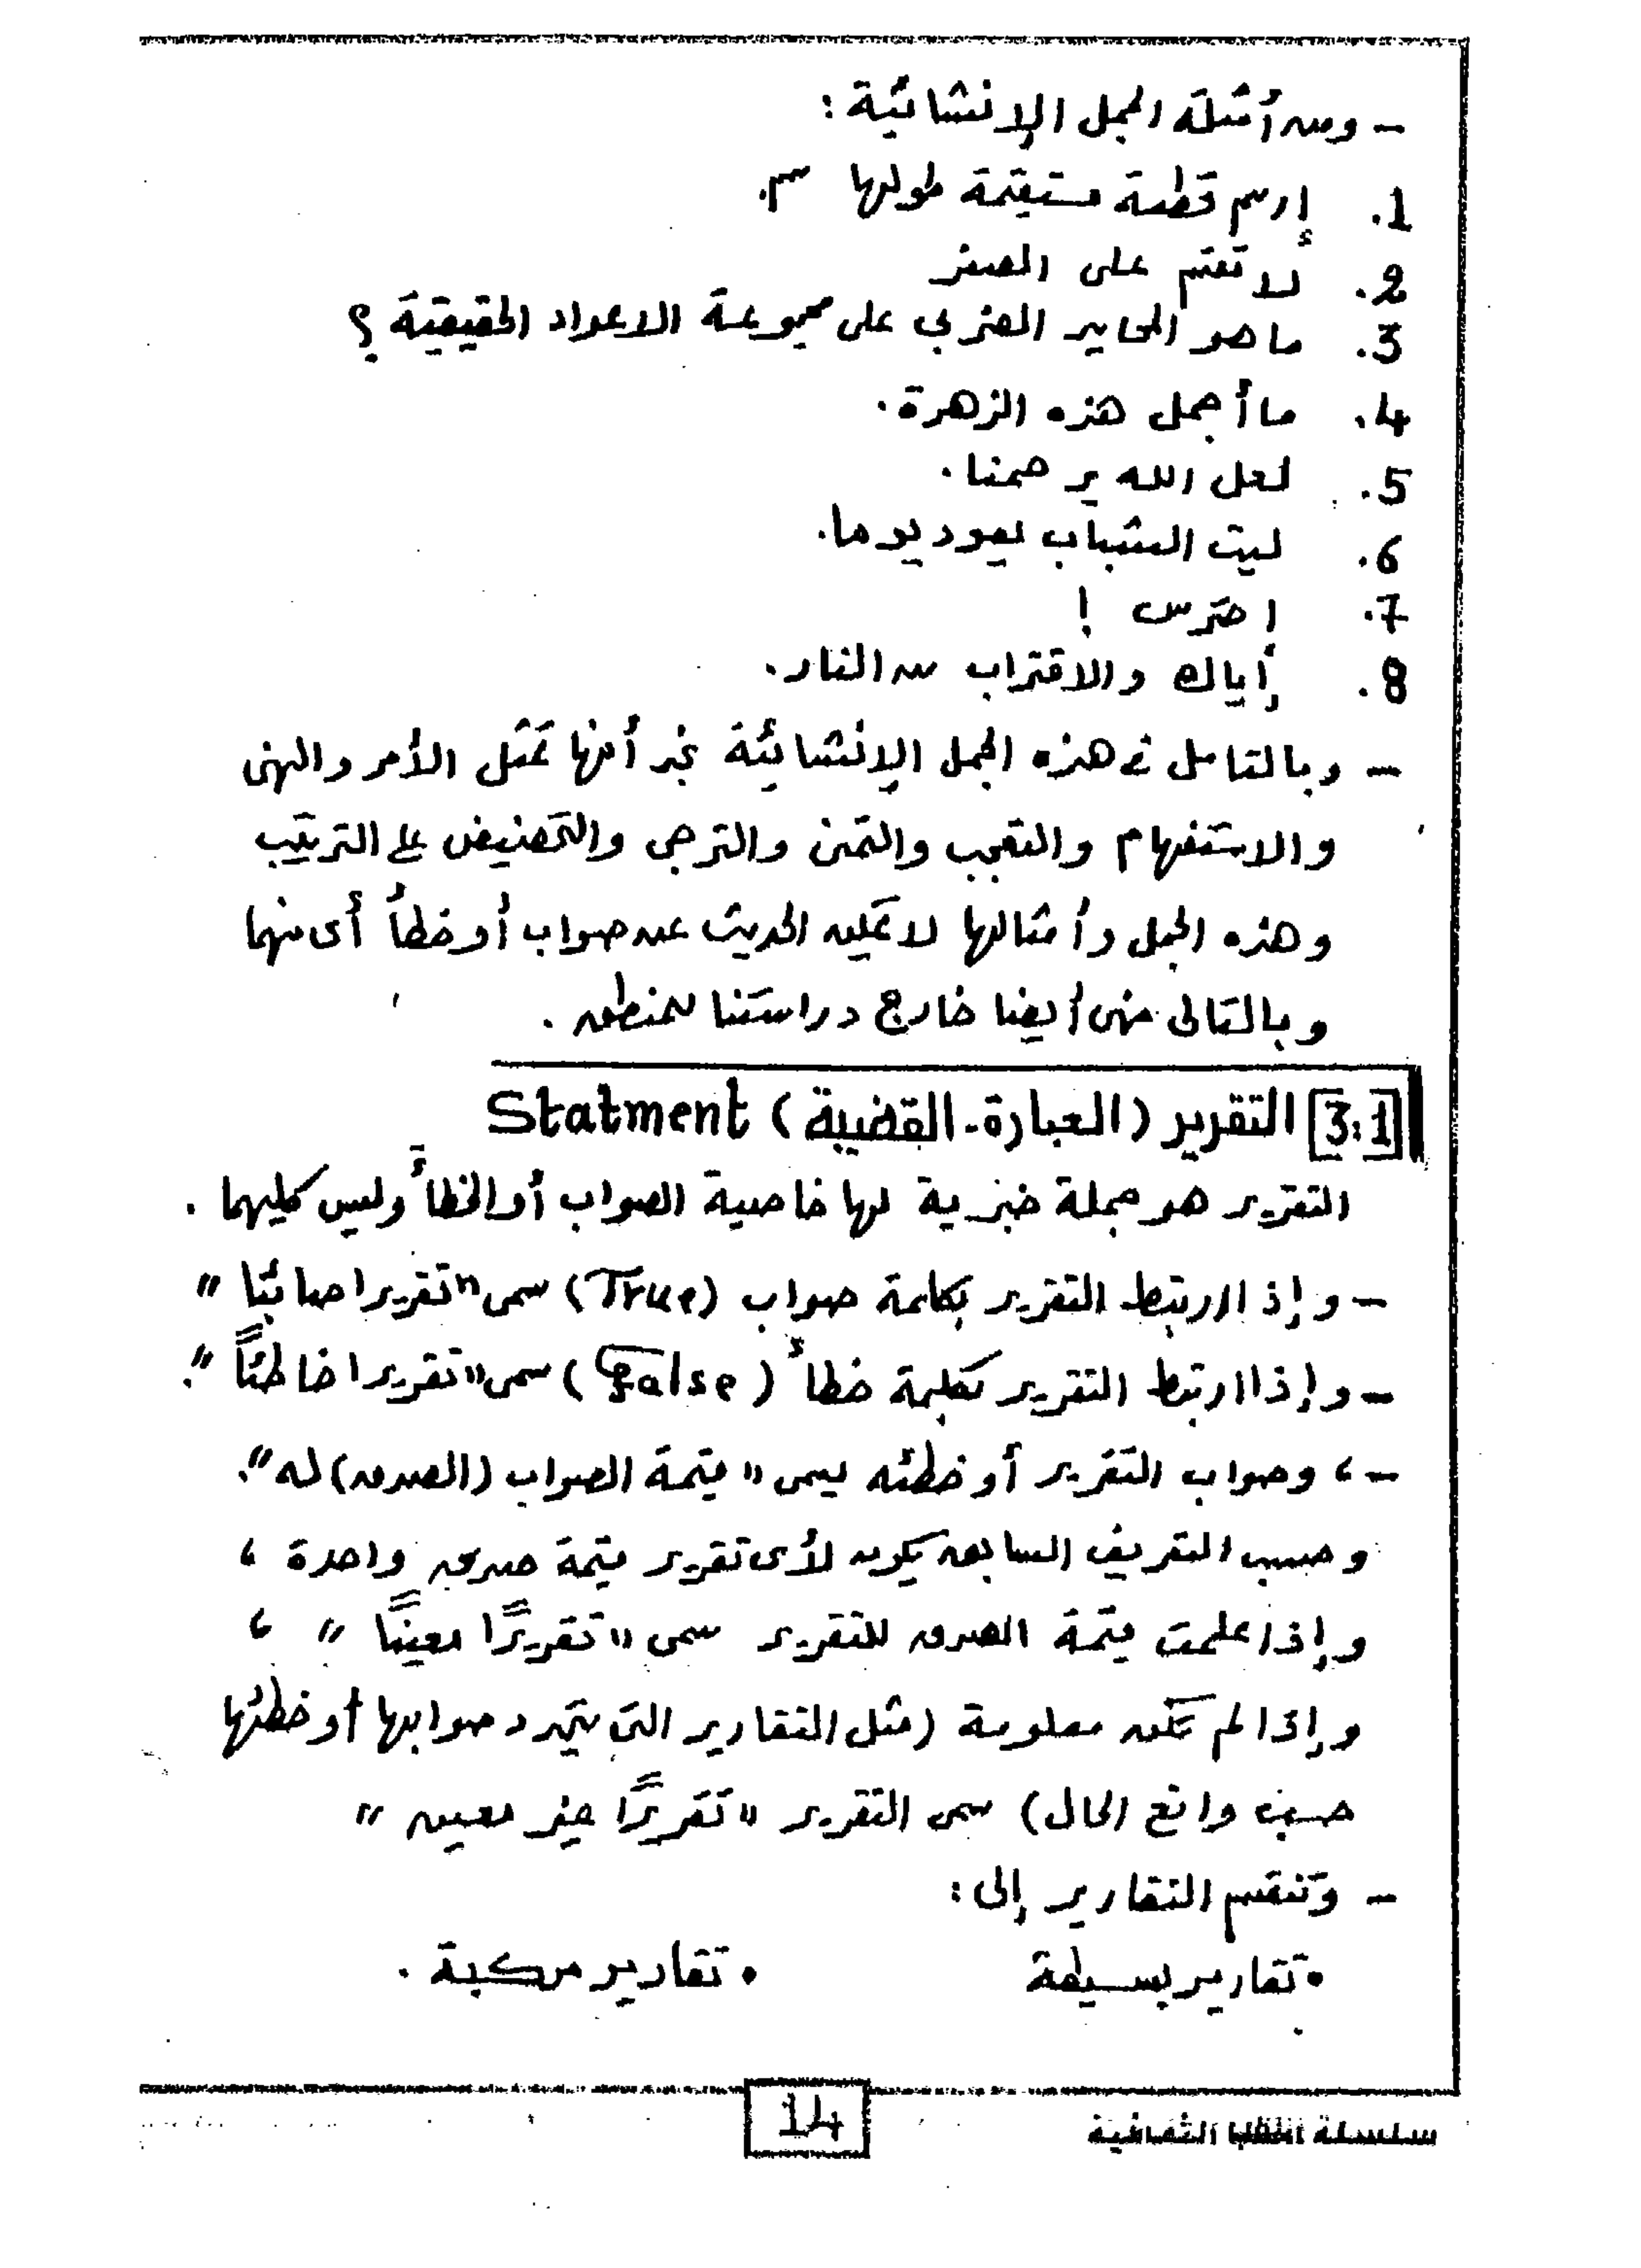 - ومن أمثلة الجمل الإنشائية :
1. إرسم قطعة مستقيمة طولها سم.
2. لا تقسم على الصفر
3. ما هو المحايد الضربي على مجموعة الاعداد الحقيقية ؟
4. ما أجمل هذه الزهرة .
5. لعل الله يرحمنا .
6. ليت الشباب يعود يوما.
7. احترس !
8. إياك والاقتراب من النار .
- وبالتامل في هذه الجمل الإنشائية نجد أنها تمثل الأمر والنهى
والاستفهام والتعجب والتمنى والترجى والتحضيض على الترتيب
وهذه الجمل وأمثالها لا يمكن الحديث عن صواب أو خطأ أى منها
وبالتالى فهى أيضا خارج دراستنا للمنطق .
[3.1] التقرير (العبارة - القضية) Statment
التقرير هو جملة خبرية لها خاصية الصواب أو الخطأ وليس كليهما .
- وإذا ارتبط التقرير بكلمة صواب (True) سمى "تقريرا صائبا"
- وإذا ارتبط التقرير بكلمة خطأ (False) سمى "تقريرا خاطئاً".
- ، وصواب التقرير أو خطئه يسمى "قيمة الصواب (الصدق) له".
وحسب التعريف السابق يكون لأى تقرير قيمة صدق واحدة ،
وإذا علمت قيمة الصدق للتقرير سمى "تقريرًا معينًا" ،
وإذا لم تكن معلومة (مثل التقارير التى يتحدد صوابها أو خطئها
حسب واقع الحال) سمى التقرير "تقريرًا غير معين"
- وتنقسم التقارير إلى :
• تقارير بسيطة • تقارير مركبة .
14
سلسلة الثقافية